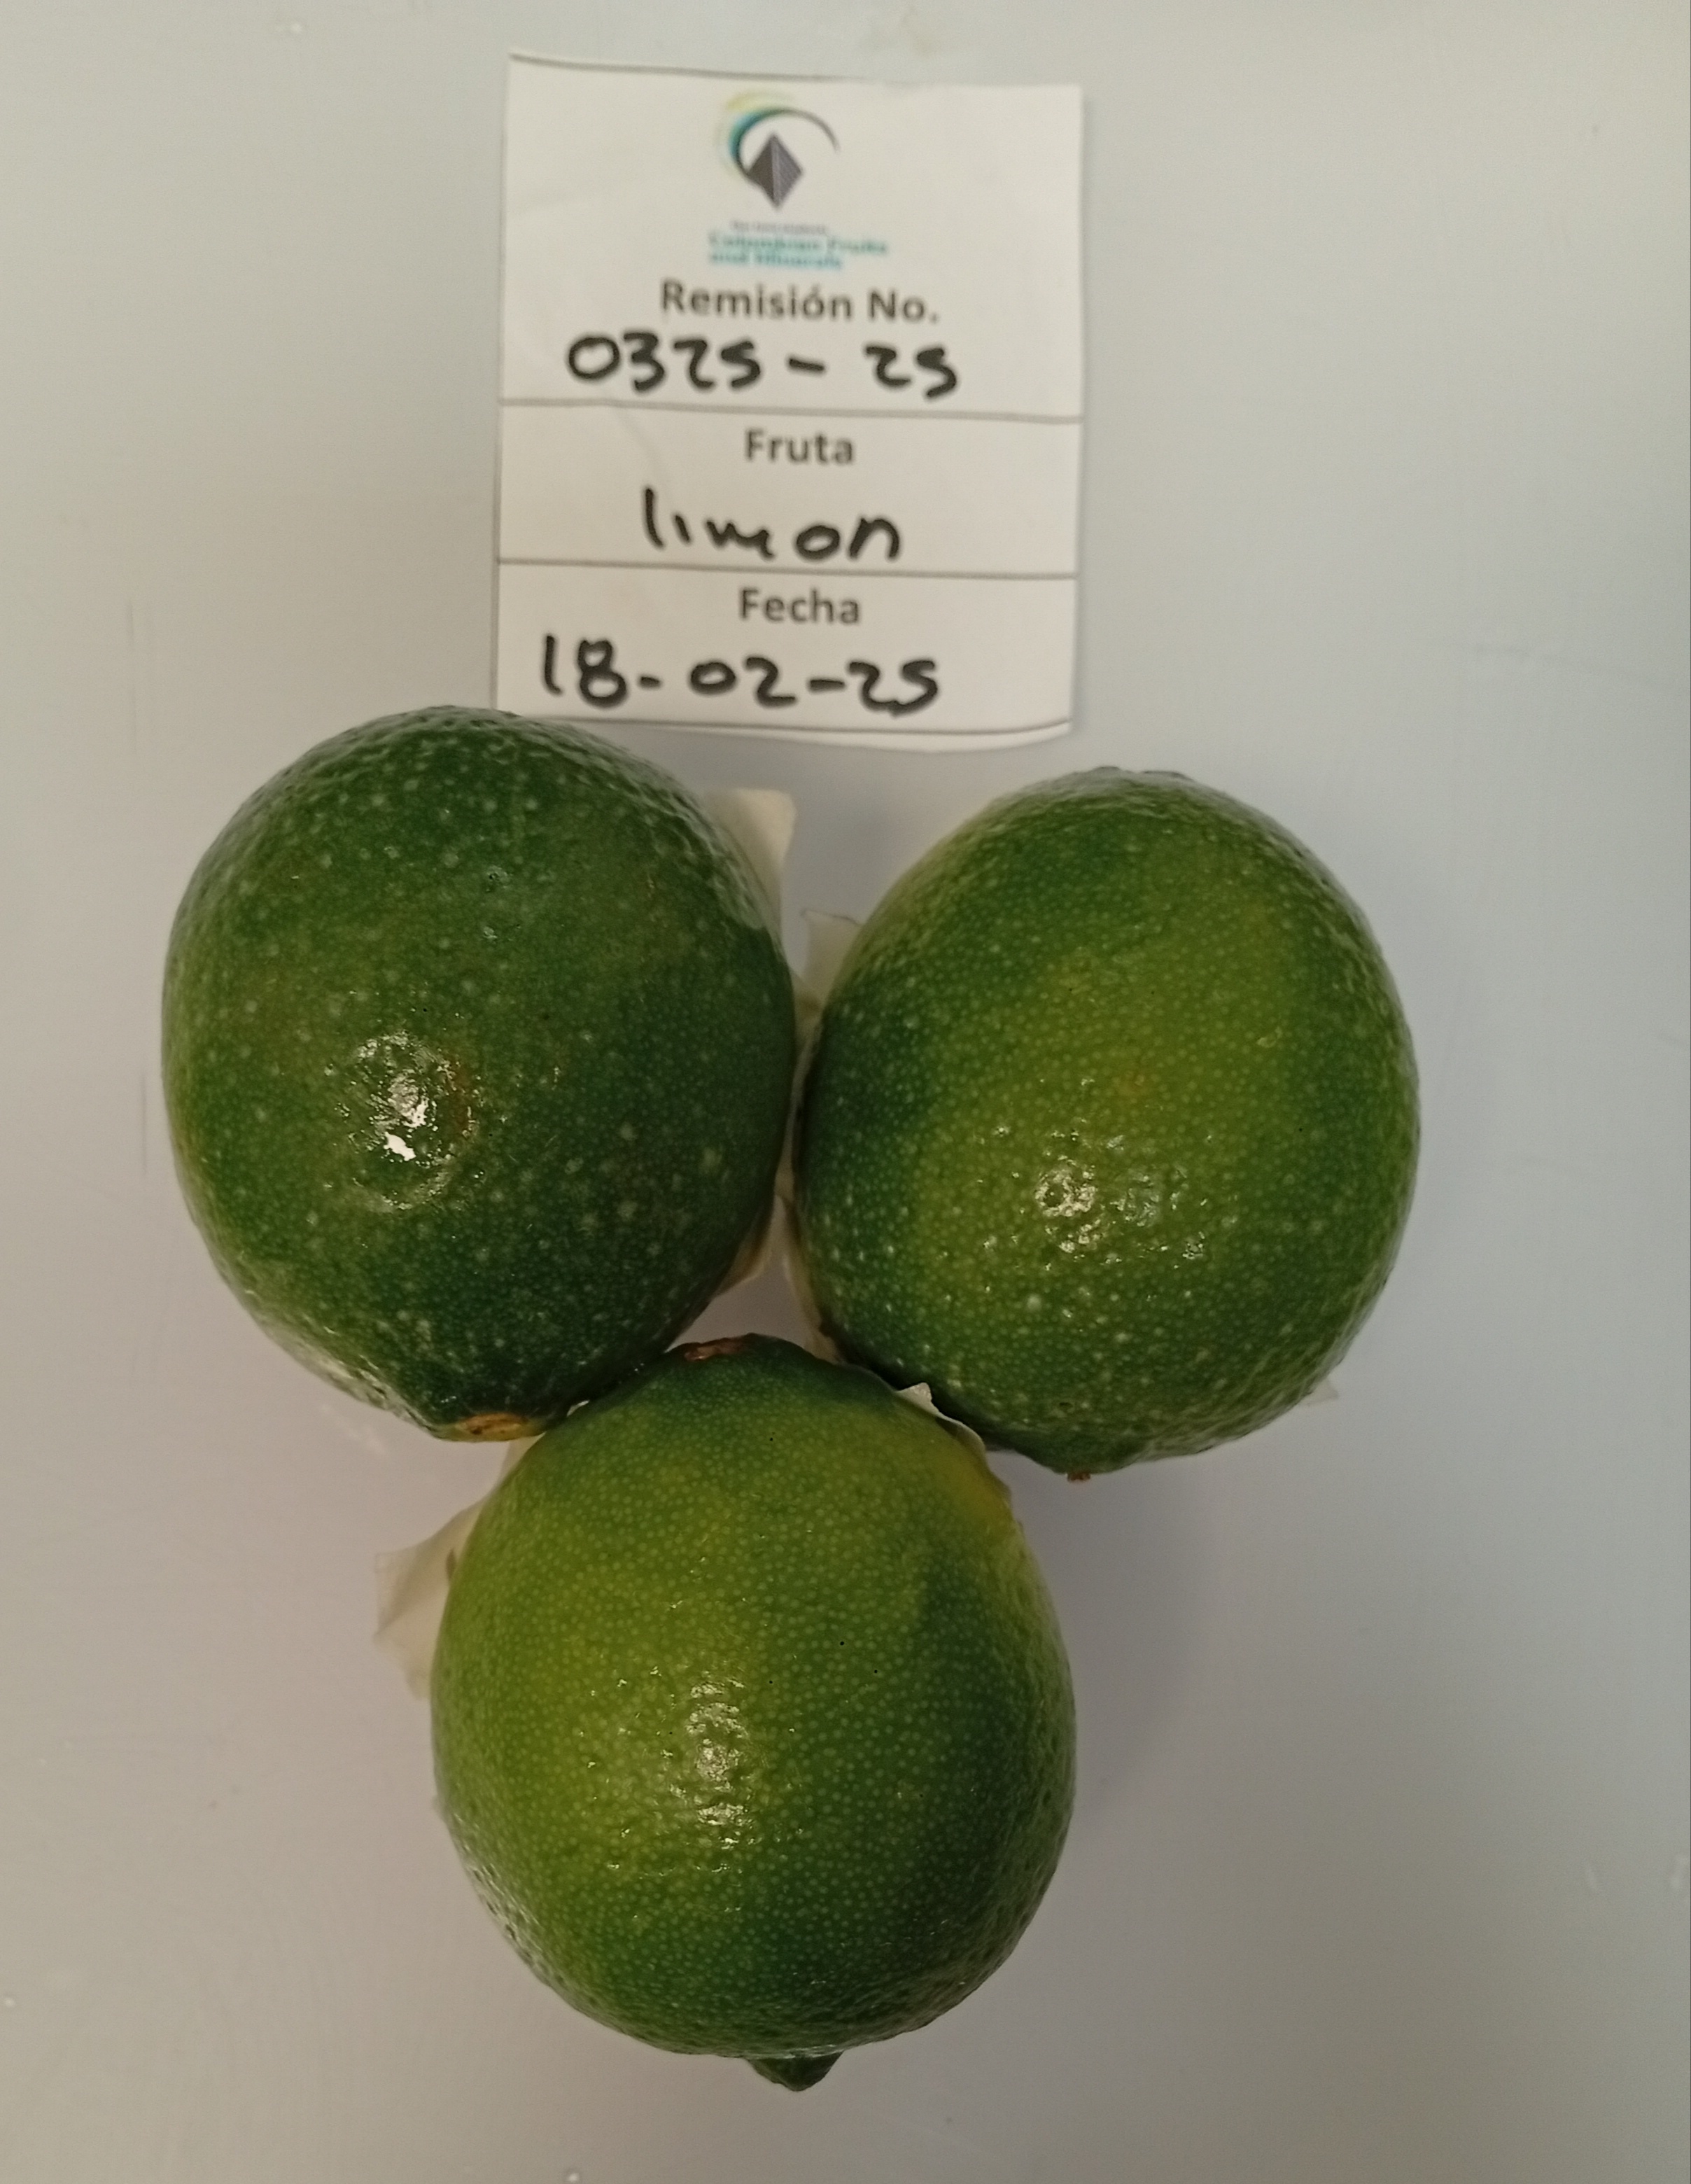 Colombian Fruits
and Minerals
Remisión No.
0325-25
Fruta
limon
Fecha
18-02-25